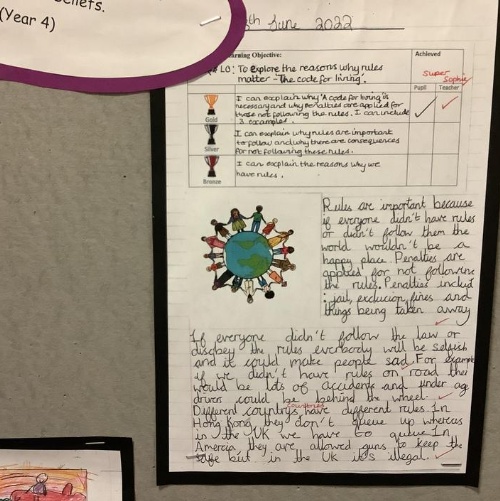 eliefs.
(Year 4)
th June 2022
arning Objective:
Achieved
LO: To explore the reasons why rules
matter - 'The code for living'.
Super
Sophie
Pupil
Teacher
Gold
I can explain why 'A code for living' is
necessary and why penalties are applied for
those not following the rules. I can include
3 examples.
Silver
I can explain why rules are important
to follow and why there are consequences
for not following these rules.
Bronze
I can explain the reasons why we
have rules.
Rules are important because
if everyone didn't have rules
or didn't follow them the
world wouldn't be a
happy place. Penalties are
applied for not following
the rules. Penalties includ
: jail, exclucion, fines and
things being taken away
If everyone didn't follow the law or
disobey the rules everbody will be selfish
and it could make people sad. For example
if we didn't have rules on road thei
would be lots of accidents and under ag
driver could be behind the wheel.
countries
Different country's have different rules. In
Hong Kong they don't queue up whereas
in the UK we have to queue. In
Amercia they are allowed guns to keep the
safe but in the UK it's illegal.